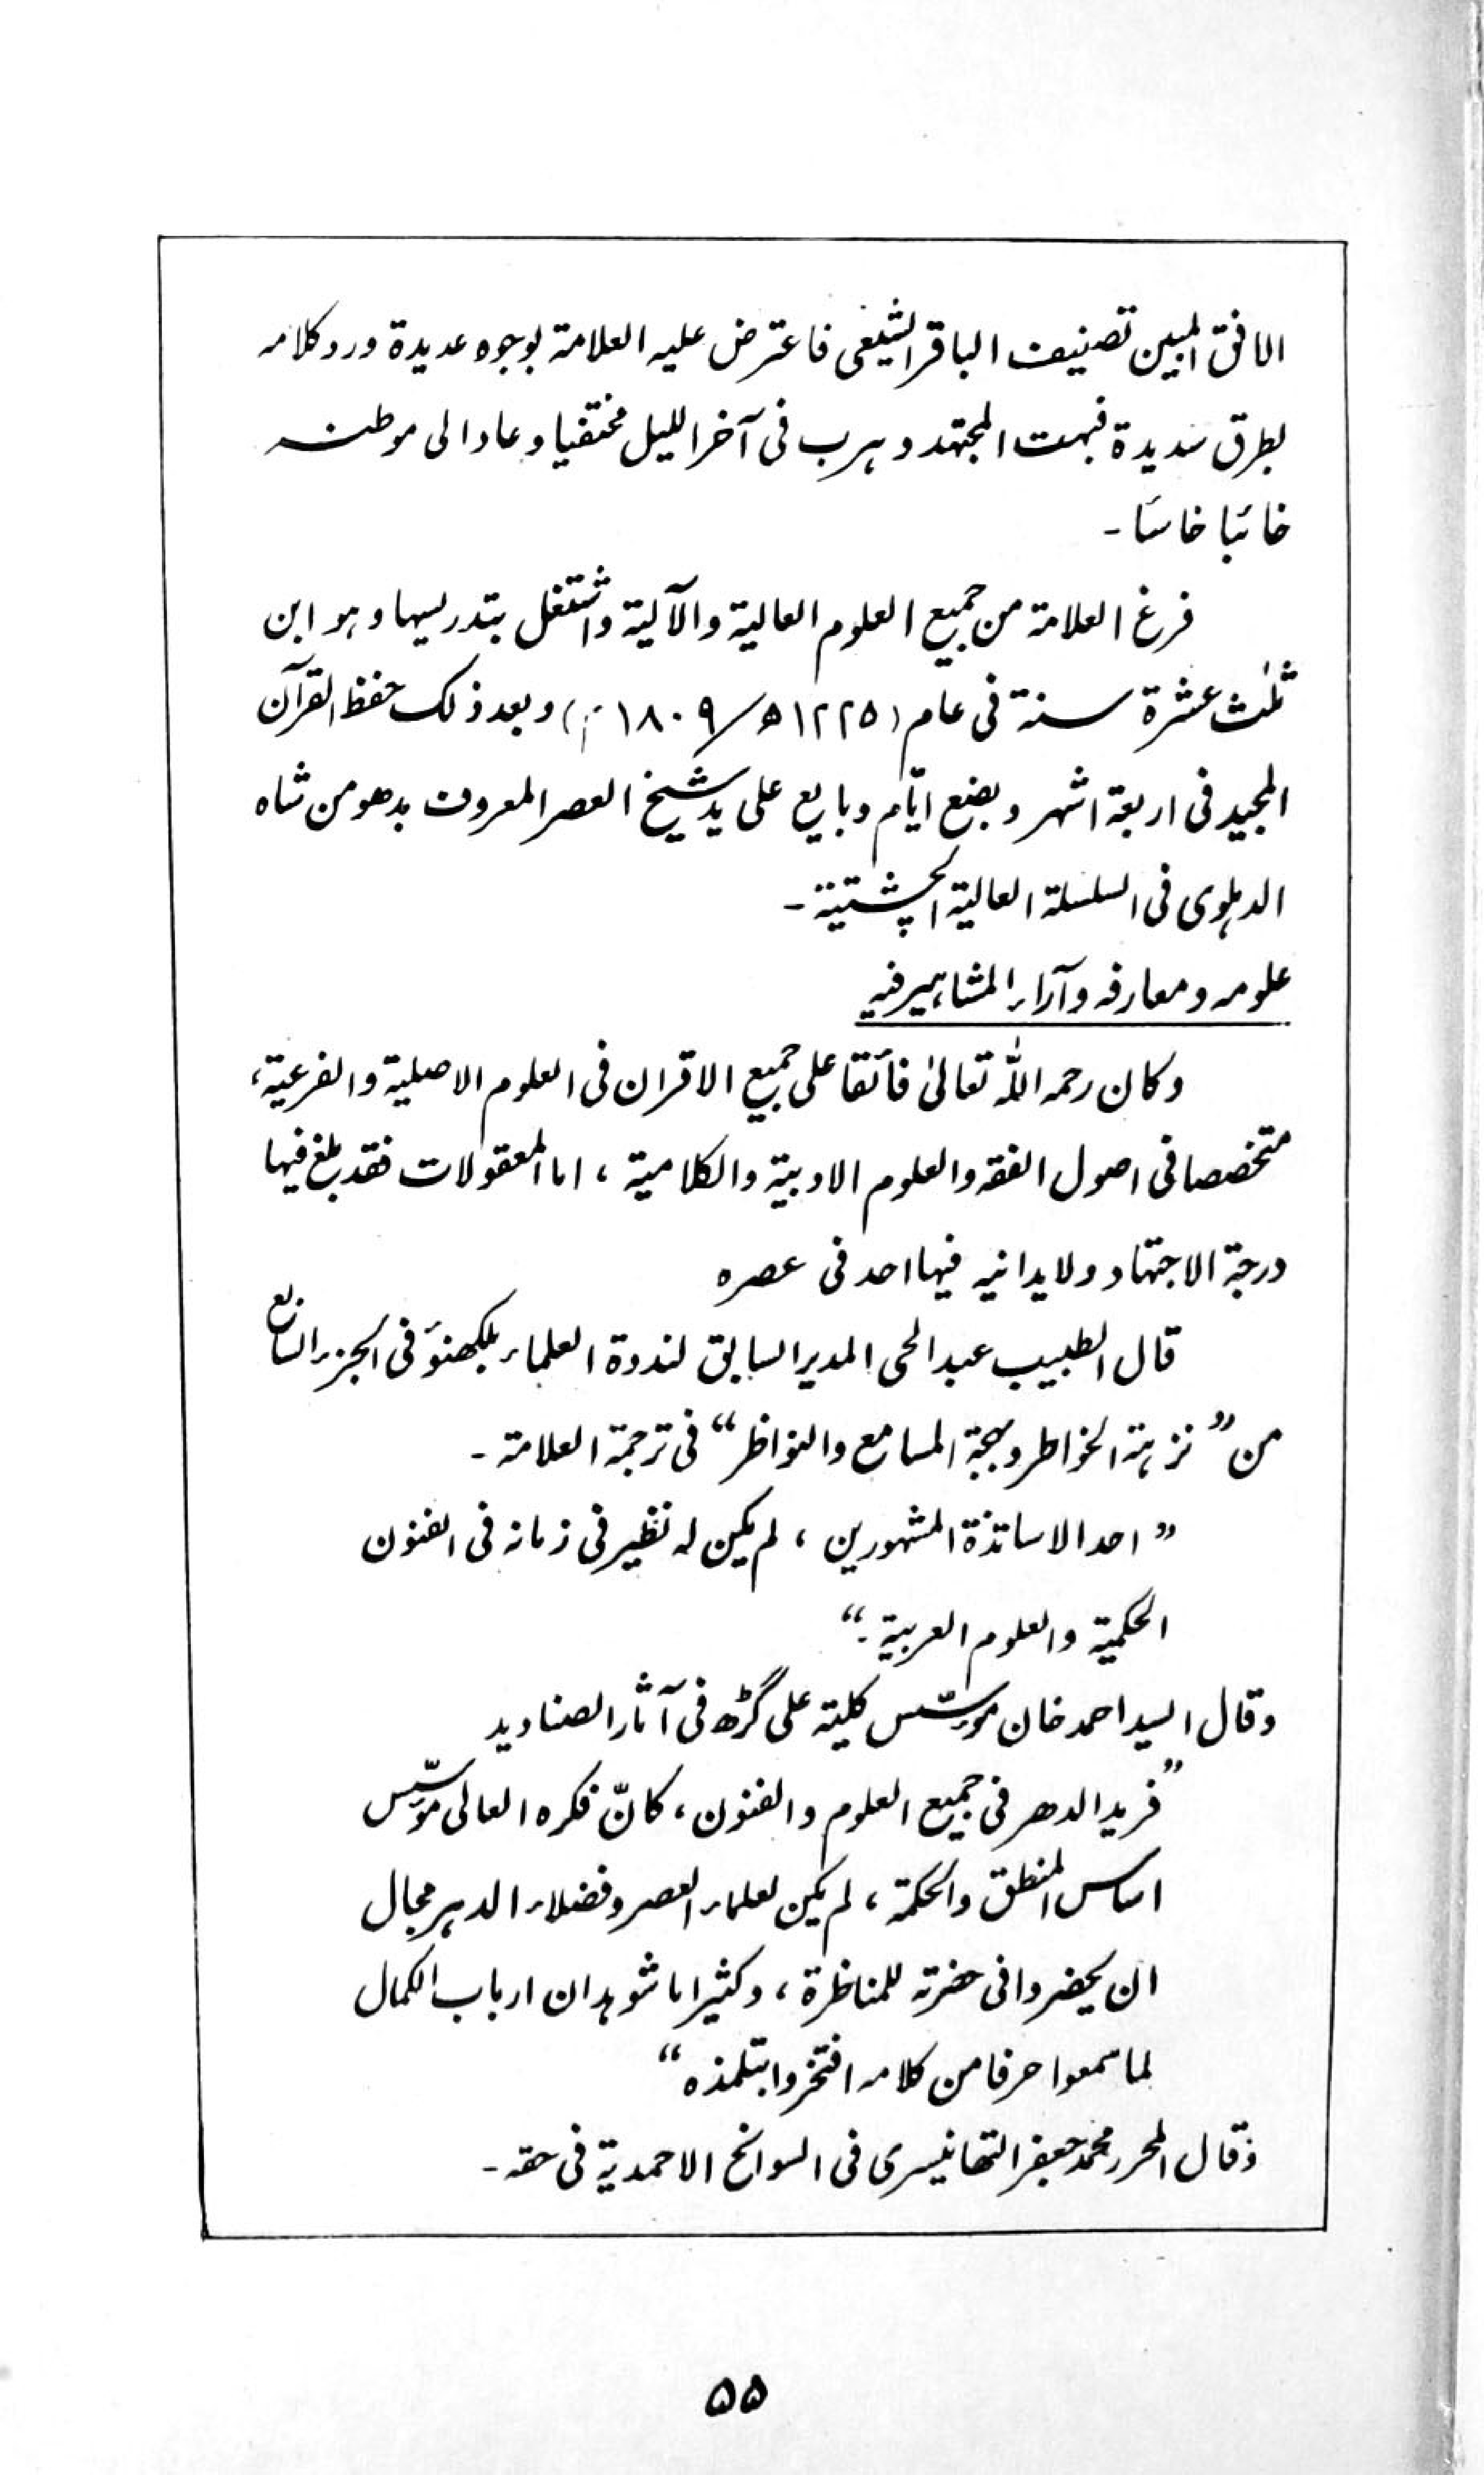 الافق المبین تصنیف الباقر الشیعی فاعترض علیه العلامة بوجوه عدیدة ورد کلامه
بطرق سدیدة فبهت المجتهد وهرب فی آخر اللیل مختفیا وعاد الی موطنه
خائبا خاسئا۔
فرغ العلامة من جمیع العلوم العالیة والآلیة واشتغل بتدریسها وهو ابن
ثلٰث عشرة سنة فی عام (۱۲۲۵ھ/۱۸۰۹م) وبعد ذلک حفظ القرآن
المجید فی اربعة اشهر وبضع ایّام وبایع علی ید شیخ العصر المعروف بدھومن شاه
الدهلوی فی السلسلة العالیة الچشتیة۔
علومه ومعارفه وآراء المشاهیر فیه
وکان رحمه اللّٰه تعالیٰ فائقا علی جمیع الاقران فی العلوم الاصلیة والفرعیة،
متخصصا فی اصول الفقه والعلوم الادبیة والکلامیة، اما المعقولات فقد بلغ فیها
درجة الاجتهاد ولا یدانیه فیها احد فی عصره
قال الطبیب عبد الحی المدیر السابق لندوة العلماء بلکھنؤ فی الجزء السابع
من ”نزهة الخواطر وبهجة المسامع والنواظر“ فی ترجمة العلامة۔
”احد الاساتذة المشهورین، لم یکن له نظیر فی زمانه فی الفنون
الحکمیة والعلوم العربیة۔“
وقال السید احمد خان مؤسّس کلیة علی گڑھ فی آثار الصنادید
”فرید الدھر فی جمیع العلوم والفنون، کانّ فکره العالی مؤسّس
اساس المنطق والحکمة، لم یکن لعلماء العصر وفضلاء الدهر مجال
ان یحضروا فی حضرته للمناظرة، وکثیرا ما شوهد ان ارباب الکمال
لما سمعوا حرفا من کلامه افتخروا بتلمذه“
وقال المحرر محمد جعفر التھانیسری فی السوانح الاحمدیة فی حقه۔
۵۵